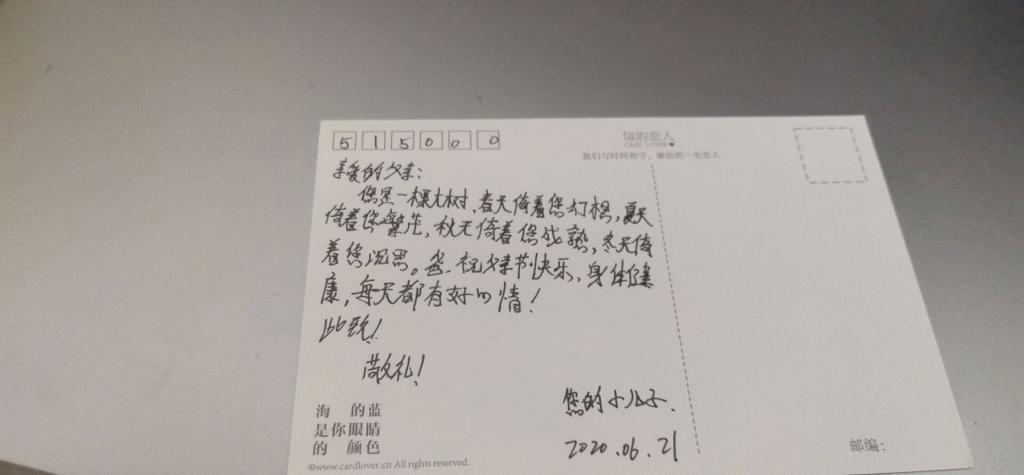 515000
信的恋人
CARD LOVER
我们与时间相守，做信的一生恋人
亲爱的父亲：
您是一棵大树，春天倚着您幻想，夏天
倚着您繁茂，秋天倚着您成熟，冬天倚
着您沉思。爸，祝父亲节快乐，身体健
康，每天都有好心情！
此致！
敬礼！
您的小儿子.
2020.06.21
海 的蓝
是你眼睛
的 颜色
©www.cardlover.cn All rights reserved.
邮编：